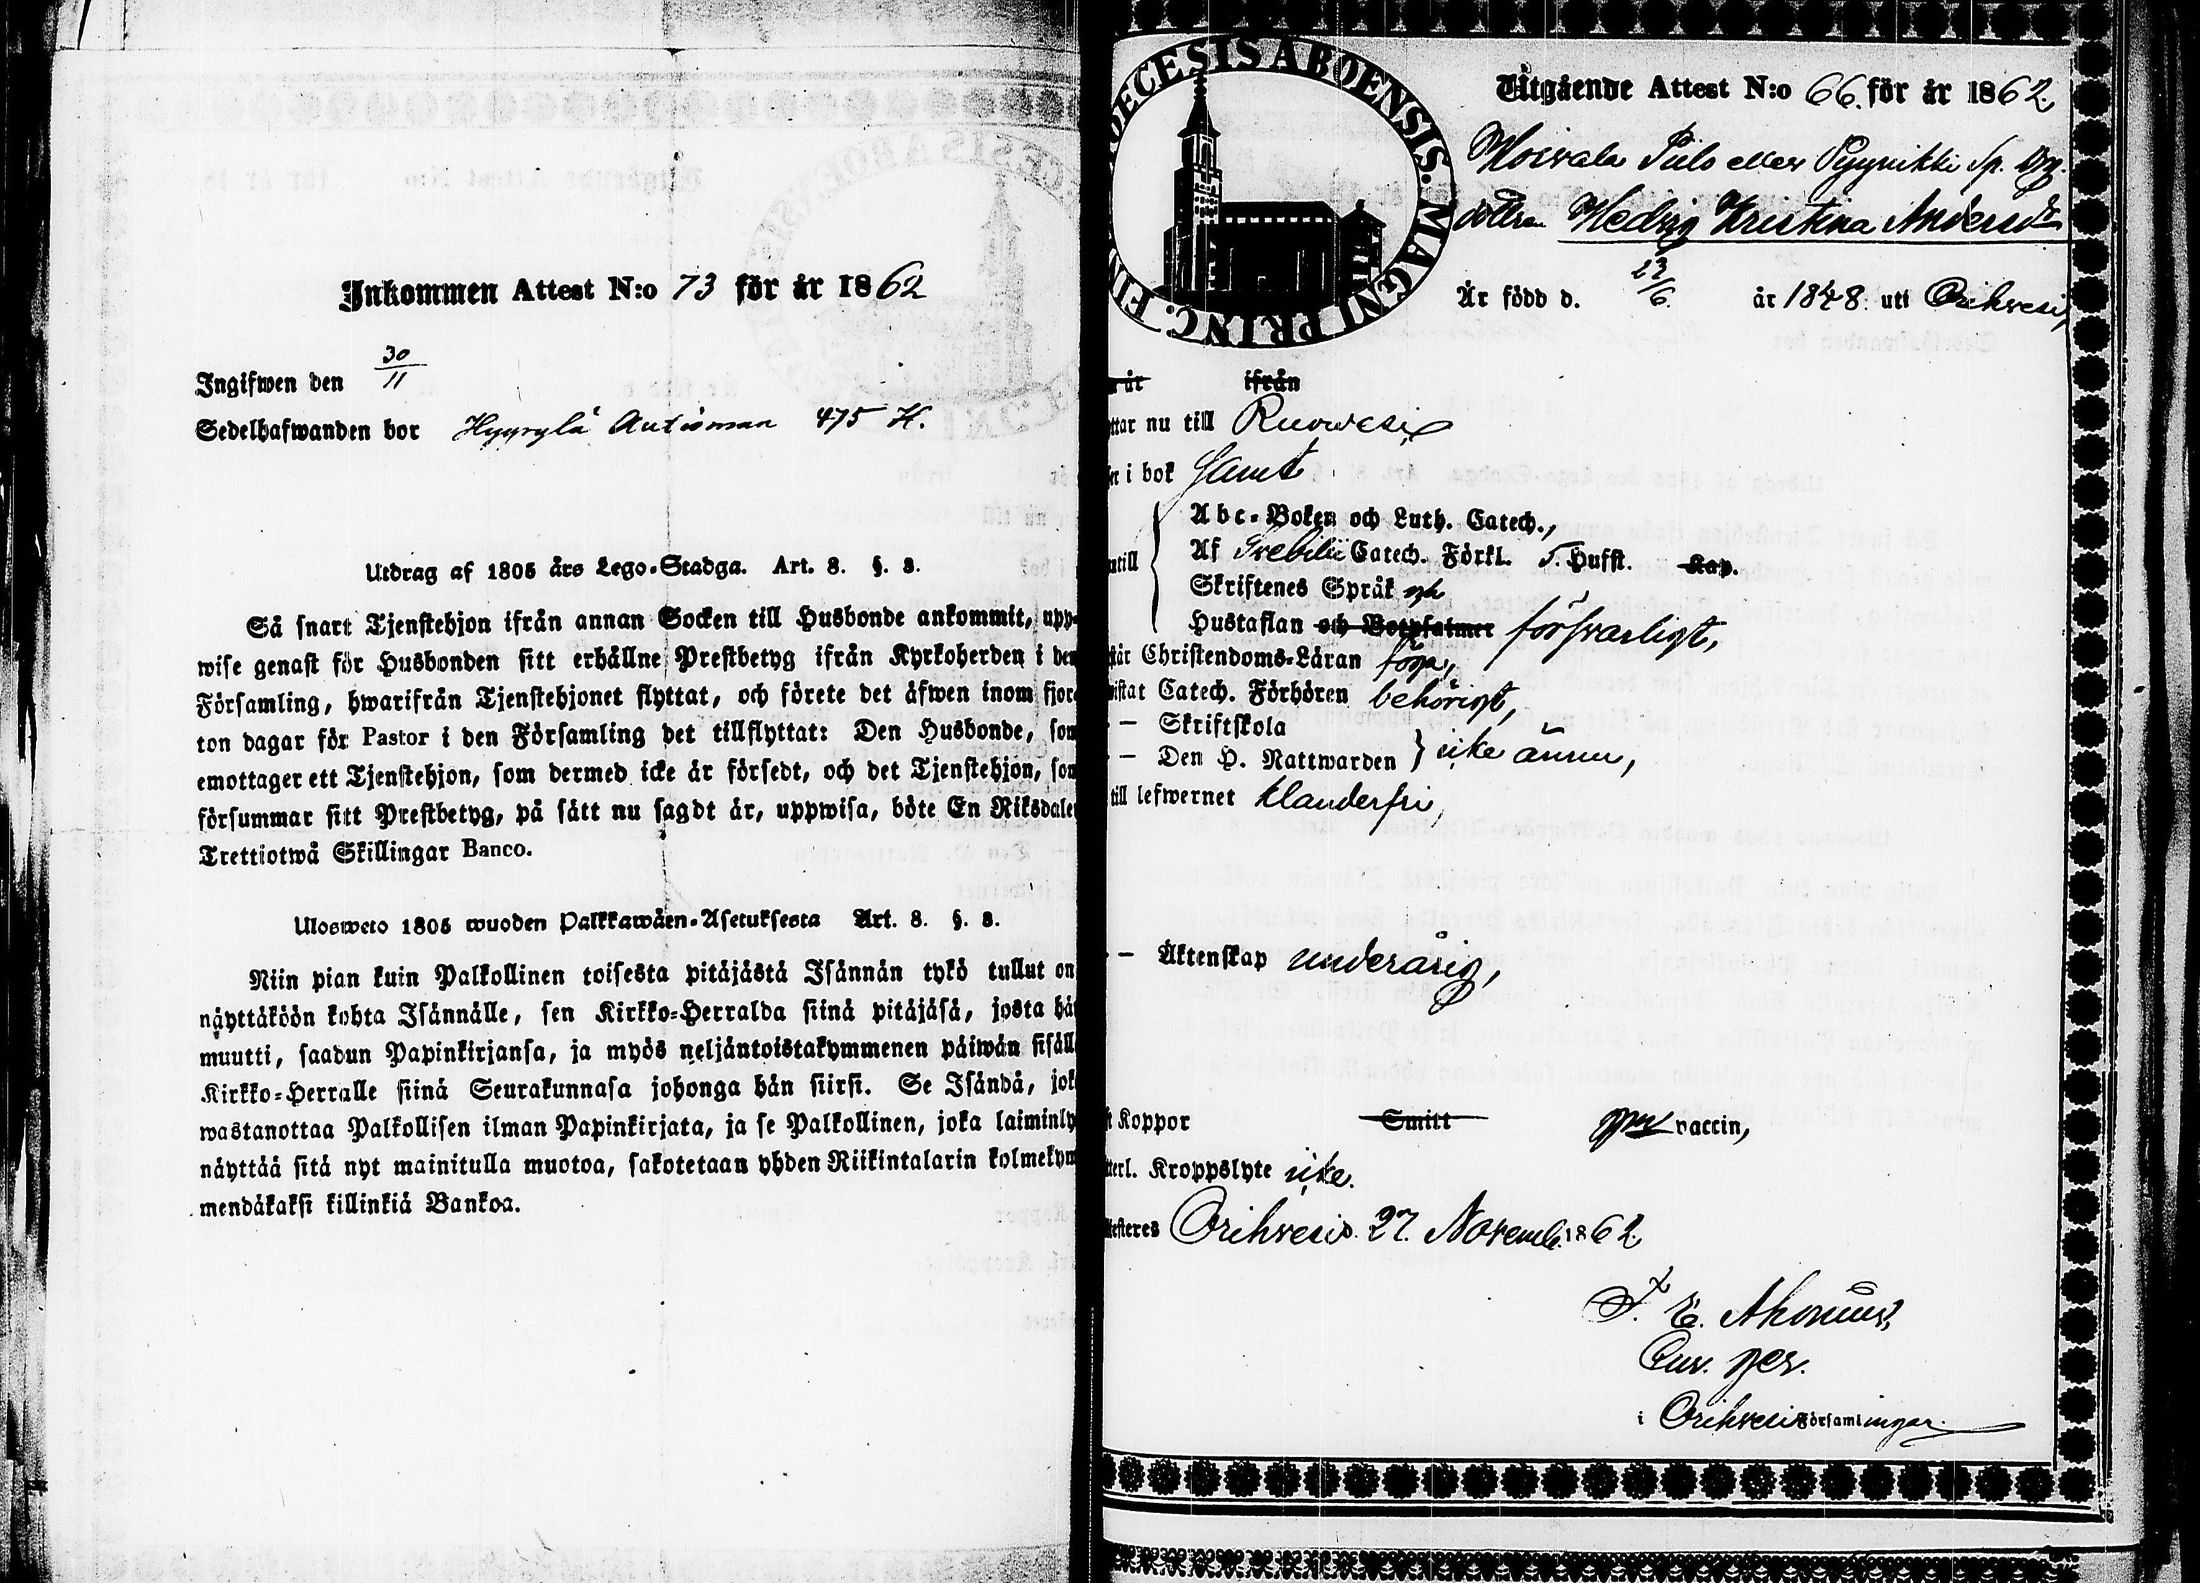 Inkommen Attest N:o 73 för år 1862
Ingifwen den 30/11
Sedelhafwanden bor Hyyrylä Autioman 475 H.
Utdrag af 1805 års Lego-Stadga. Art. 8. §. 8.
Så snart Tjenstehjon ifrån annan Socken till Husbonde ankommit, upp-
wise genast för Husbonden sitt erhållne Prestbetyg ifrån Kyrkoherden i den
Församling, hwarifrån Tjenstehjonet flyttat, och förete det äfwen inom fjor-
ton dagar för Pastor i den Församling det tillflyttat: Den Husbonde, som
emottager ett Tjenstehjon, som dermed icke är försedt, och det Tjenstehjon, som
försummar sitt Prestbetyg, på sätt nu sagdt är, uppwisa, böte En Riksdaler
Trettiotwå Skillingar Banco.
Ulosweto 1805 wuoden Palkkawäen-Asetuksesta Art. 8. §. 8.
Niin pian kuin Palkollinen toisesta pitäjästä Isännän tykö tullut on
näyttäköön kohta Isännälle, sen Kirkko-Herralda siinä pitäjäsä, josta hän
muutti, saadun Papinkirjansa, ja myös neljäntoistakymmenen päiwän sisäll
Kirkko-Herralle siinä Seurakunnasa johonga hän siirsi. Se Isändä, jok
wastanottaa Palkollisen ilman Papinkirjata, ja se Palkollinen, joka laiminly
näyttää sitä nyt mainitulla muotoa, sakotetaan yhden Riikintalarin kolmekym
mendäkaksi killinkiä Bankoa.
DECESIS ABOENSIS. MAGNI PRINC. FIN
Utgående Attest N:o 66. för år 1862.
Koivala Piilo eller Pyynikki Sp.
dottren Hedvig Kristina Andersdr
Är född d. /6. år 1848. uti Orihvesi,
år ifrån
ttar nu till Ruovesi
er i bok samt
Abc-Boken och Luth. Catech.,
ntill Af Svebilii Catech. Förkl. T. Hufst. Kap.
Skriftenes Språk och
Hustaflan och Botpsalmer försvarligt,
står Christendoms-Läran föga,
wistat Catech. Förhören behörigt,
— Skriftskola
— Den H. Nattwarden } icke ännu,
till lefwernet klanderfri,
— Äktenskap underårig,
t Koppor Smitt gm vaccin,
terl. Kroppslyte icke.
ttesteres Orihvesi d. 27. Novemb. 1862.
F. E. Ahonius,
Cur. ger.
i Orihvesi Församlingar.